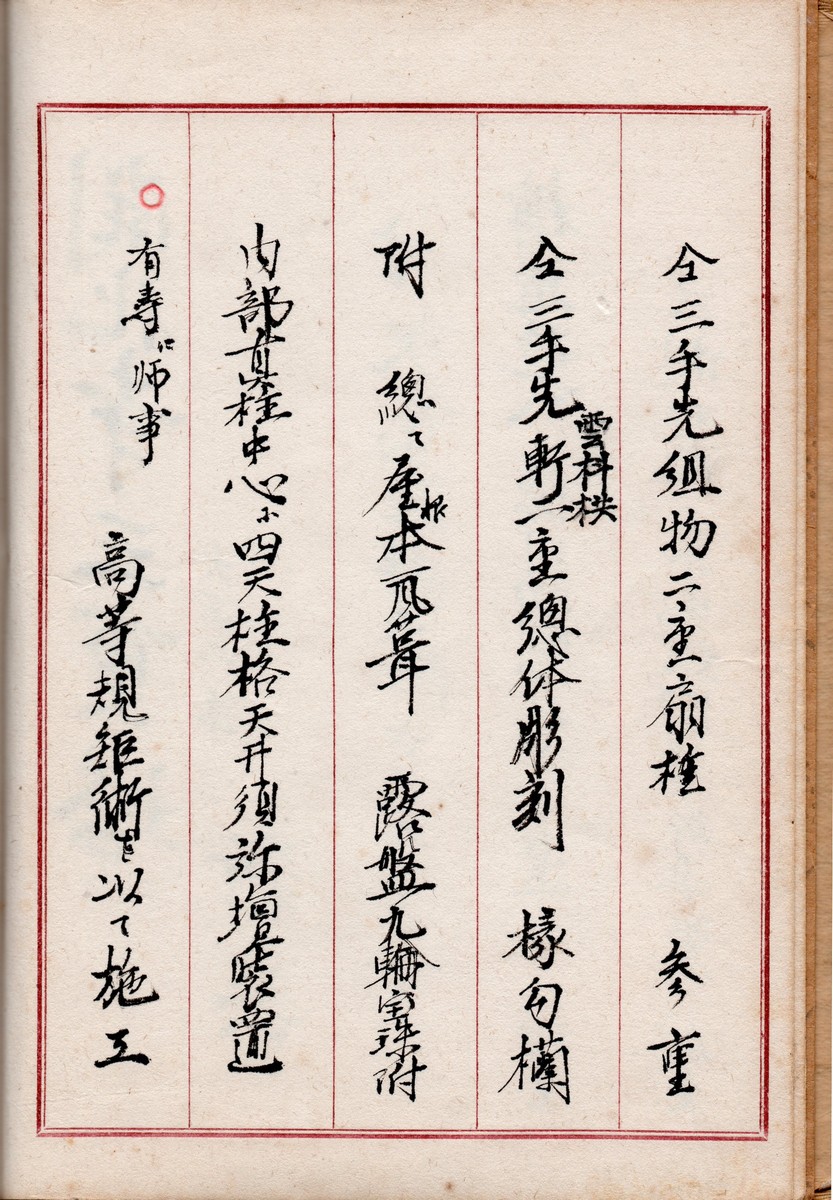 仝三手先組物二重扇棰　参重
仝三手先斬二重總体彫刻　椽勾欄
雲科栱
附　總て屋根本瓦葺　露盤九輪宝珠附
内部真柱中心ニ四天柱格天井須弥壇装置
有寿ニ師事　高等規矩術を以て施工